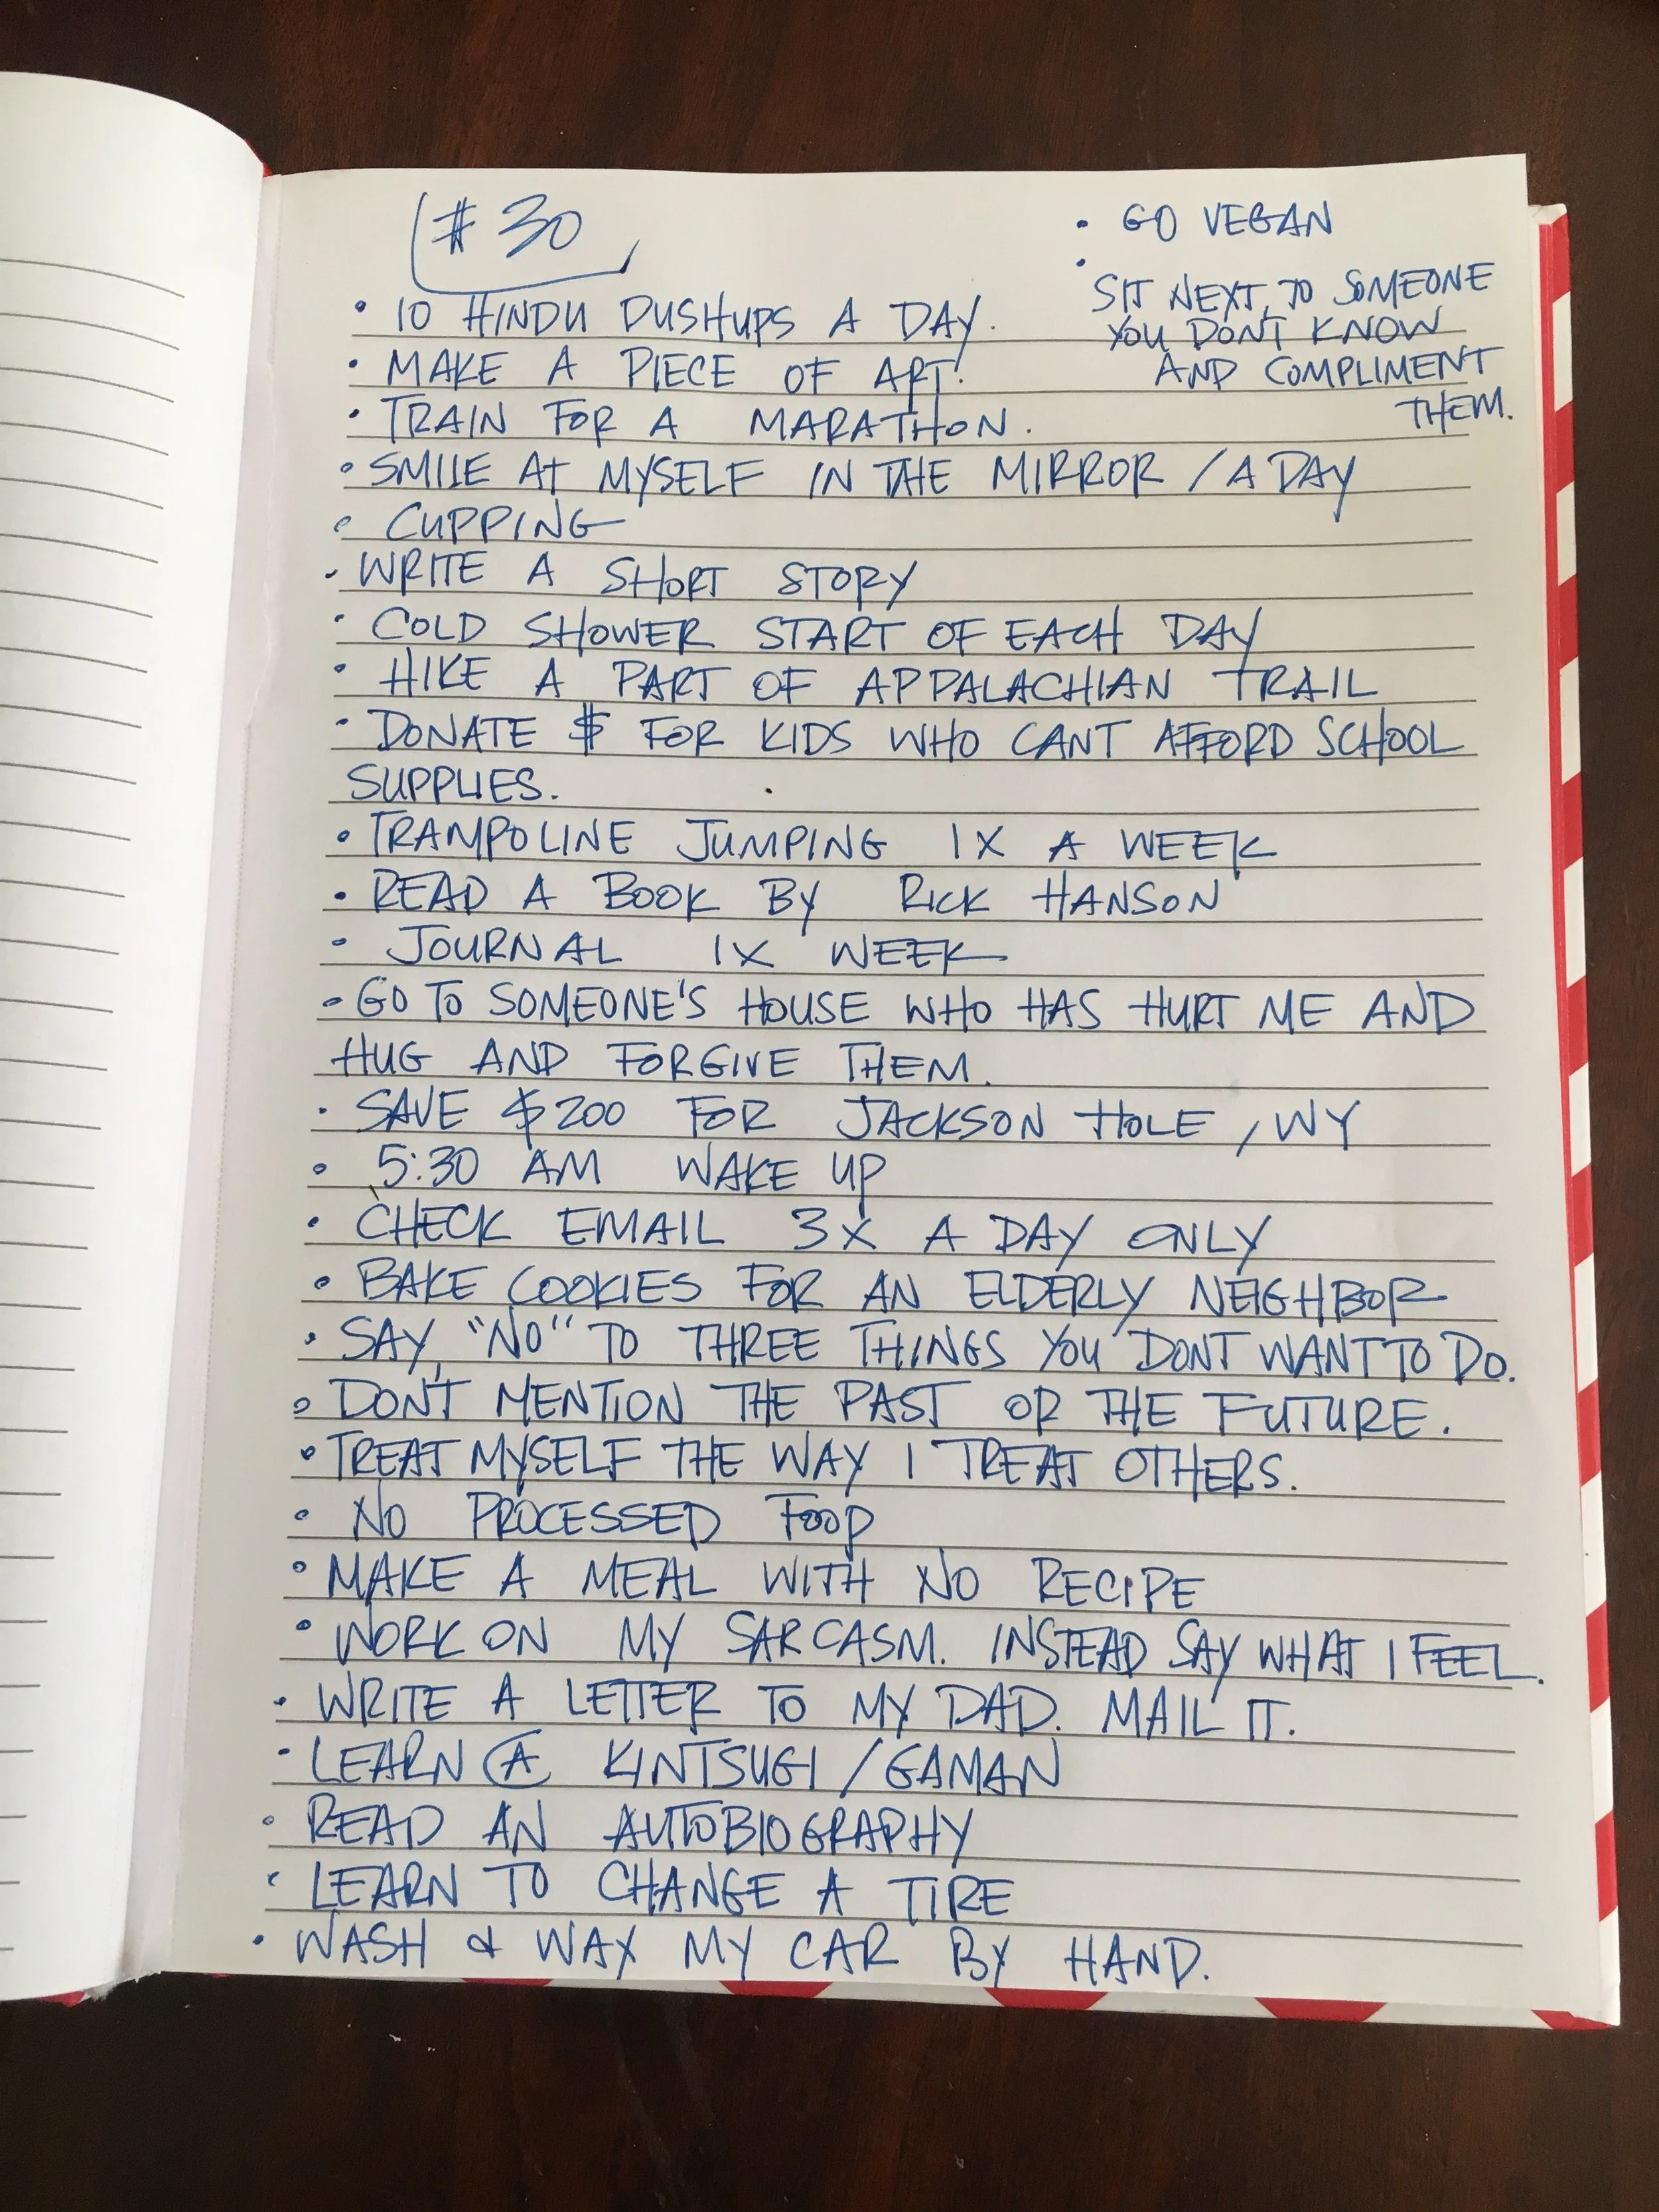 # 30
• 10 HINDU PUSHUPS A DAY.
• MAKE A PIECE OF ART!
• TRAIN FOR A MARATHON.
• SMILE AT MYSELF IN THE MIRROR / A DAY
• CUPPING
• WRITE A SHORT STORY
• COLD SHOWER START OF EACH DAY
• HIKE A PART OF APPALACHIAN TRAIL
• DONATE $ FOR KIDS WHO CANT AFFORD SCHOOL
SUPPLIES.
• TRAMPOLINE JUMPING 1X A WEEK
• READ A BOOK BY RICK HANSON
• JOURNAL 1X WEEK
• GO TO SOMEONE'S HOUSE WHO HAS HURT ME AND
HUG AND FORGIVE THEM.
• SAVE $200 FOR JACKSON HOLE, WY
• 5:30 AM WAKE UP
• CHECK EMAIL 3X A DAY ONLY
• BAKE COOKIES FOR AN ELDERLY NEIGHBOR
• SAY, "NO" TO THREE THINGS YOU DONT WANT TO DO.
• DON'T MENTION THE PAST OR THE FUTURE.
• TREAT MYSELF THE WAY I TREAT OTHERS.
• NO PROCESSED FOOD
• MAKE A MEAL WITH NO RECIPE
• WORK ON MY SARCASM. INSTEAD SAY WHAT I FEEL.
• WRITE A LETTER TO MY DAD. MAIL IT.
• LEARN A KINTSUGI / GAMAN
• READ AN AUTOBIOGRAPHY
• LEARN TO CHANGE A TIRE
• WASH & WAX MY CAR BY HAND.
• GO VEGAN
• SIT NEXT TO SOMEONE
YOU DON'T KNOW
AND COMPLIMENT
THEM.